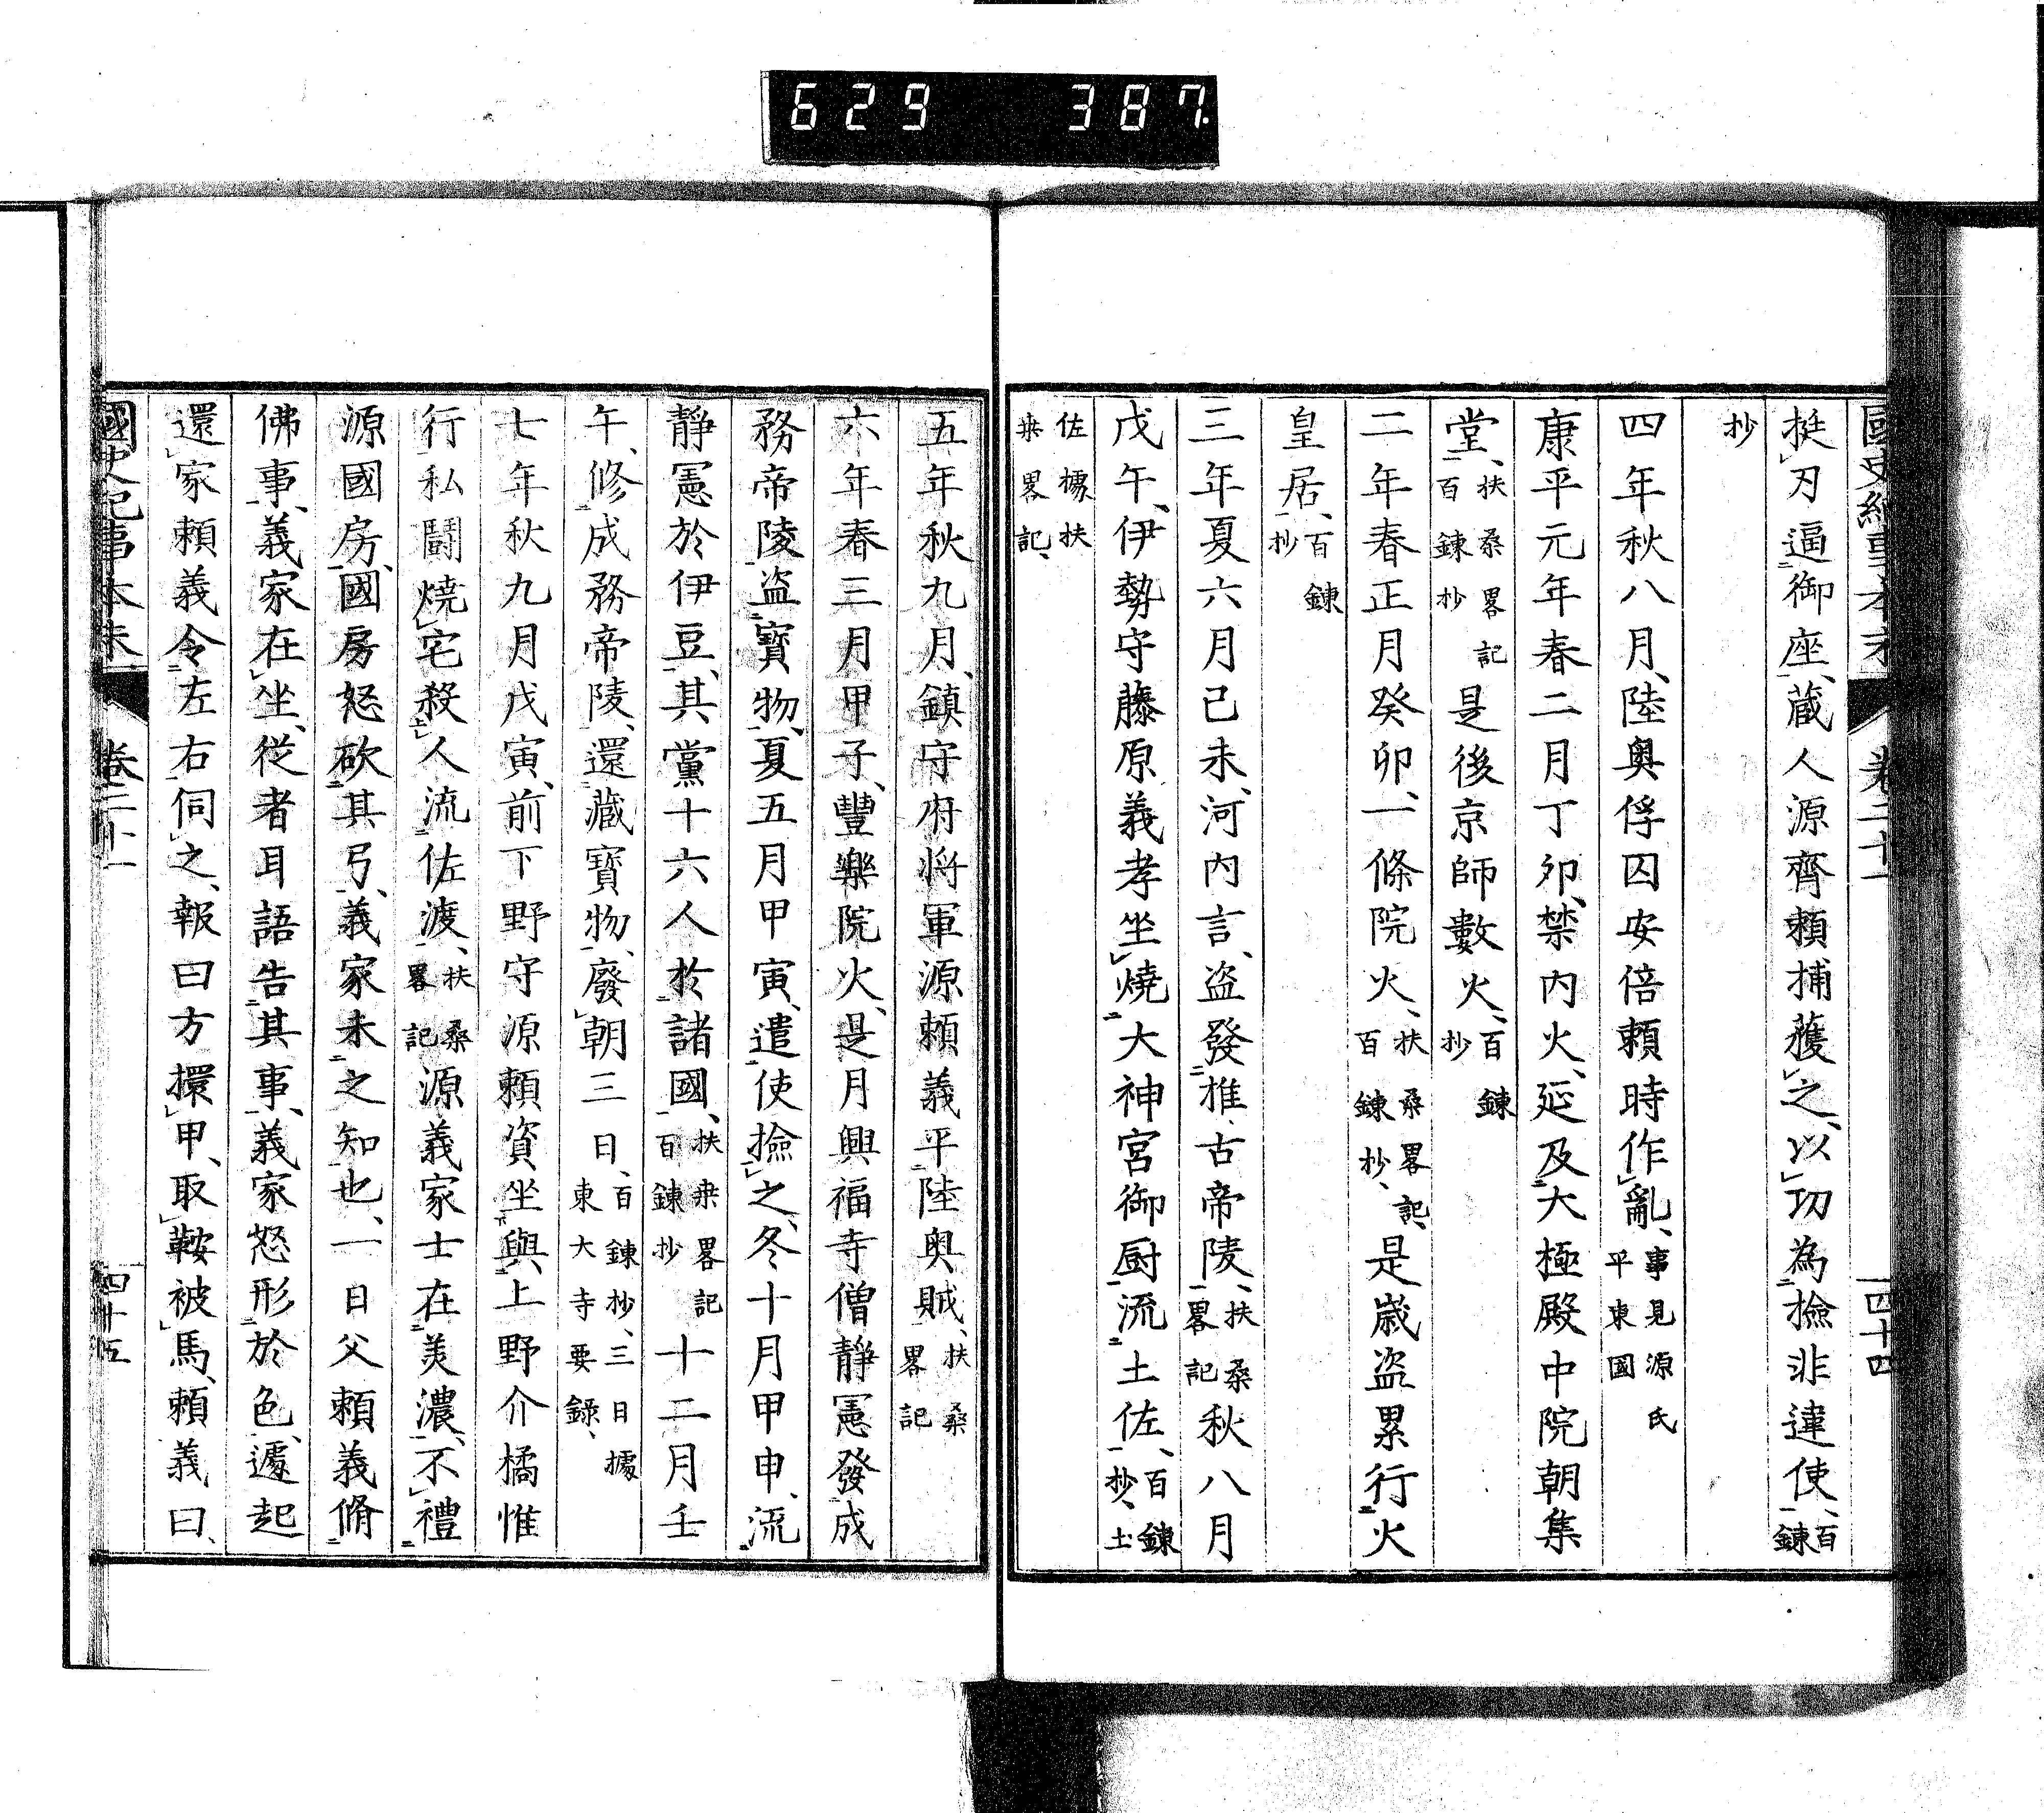 629 387
國史紀事本末 卷二十一 四十四
挺刃逼御座、蔵人源齊頼捕獲之、以功為撿非違使、百鍊
抄
四年秋八月、陸奥俘囚安倍頼時作亂、事見源氏平東國
康平元年春二月丁卯、禁内火、延及大極殿中院朝集
堂、扶桑畧記百鍊抄是後京師數火、百鍊抄
二年春正月癸卯、一條院火、扶桑畧記、百鍊抄、是歳盗累行火
皇居、百鍊抄
三年夏六月己未、河内言、盗發推古帝陵、扶桑畧記秋八月
戊午、伊勢守藤原義孝坐燒大神宮御厨流土佐、百鍊抄、土
佐據扶桒畧記、
五年秋九月、鎮守府将軍源頼義平陸奥賊、扶桑畧記
六年春三月甲子、豐樂院火、是月興福寺僧靜憲發成
務帝陵盗寳物、夏五月甲寅、遣使撿之、冬十月甲申、流
靜憲於伊豆、其黨十六人於諸國、扶桒畧記百鍊抄十二月壬
午、修成務帝陵、還藏寳物、廢朝三日、百鍊抄、三日據東大寺要録、
七年秋九月戊寅、前下野守源頼資坐與上野介橘惟
行私鬪燒宅殺人流佐渡、扶桑畧記源義家士在美濃、不禮
源國房、國房怒砍其弓、義家未之知也、一日父頼義脩
佛事、義家在坐、従者耳語告其事、義家怒形於色、遽起
還家頼義令左右伺之、報曰方擐甲、取鞍被馬、頼義曰、
國史紀事本末 卷二十一 四十五